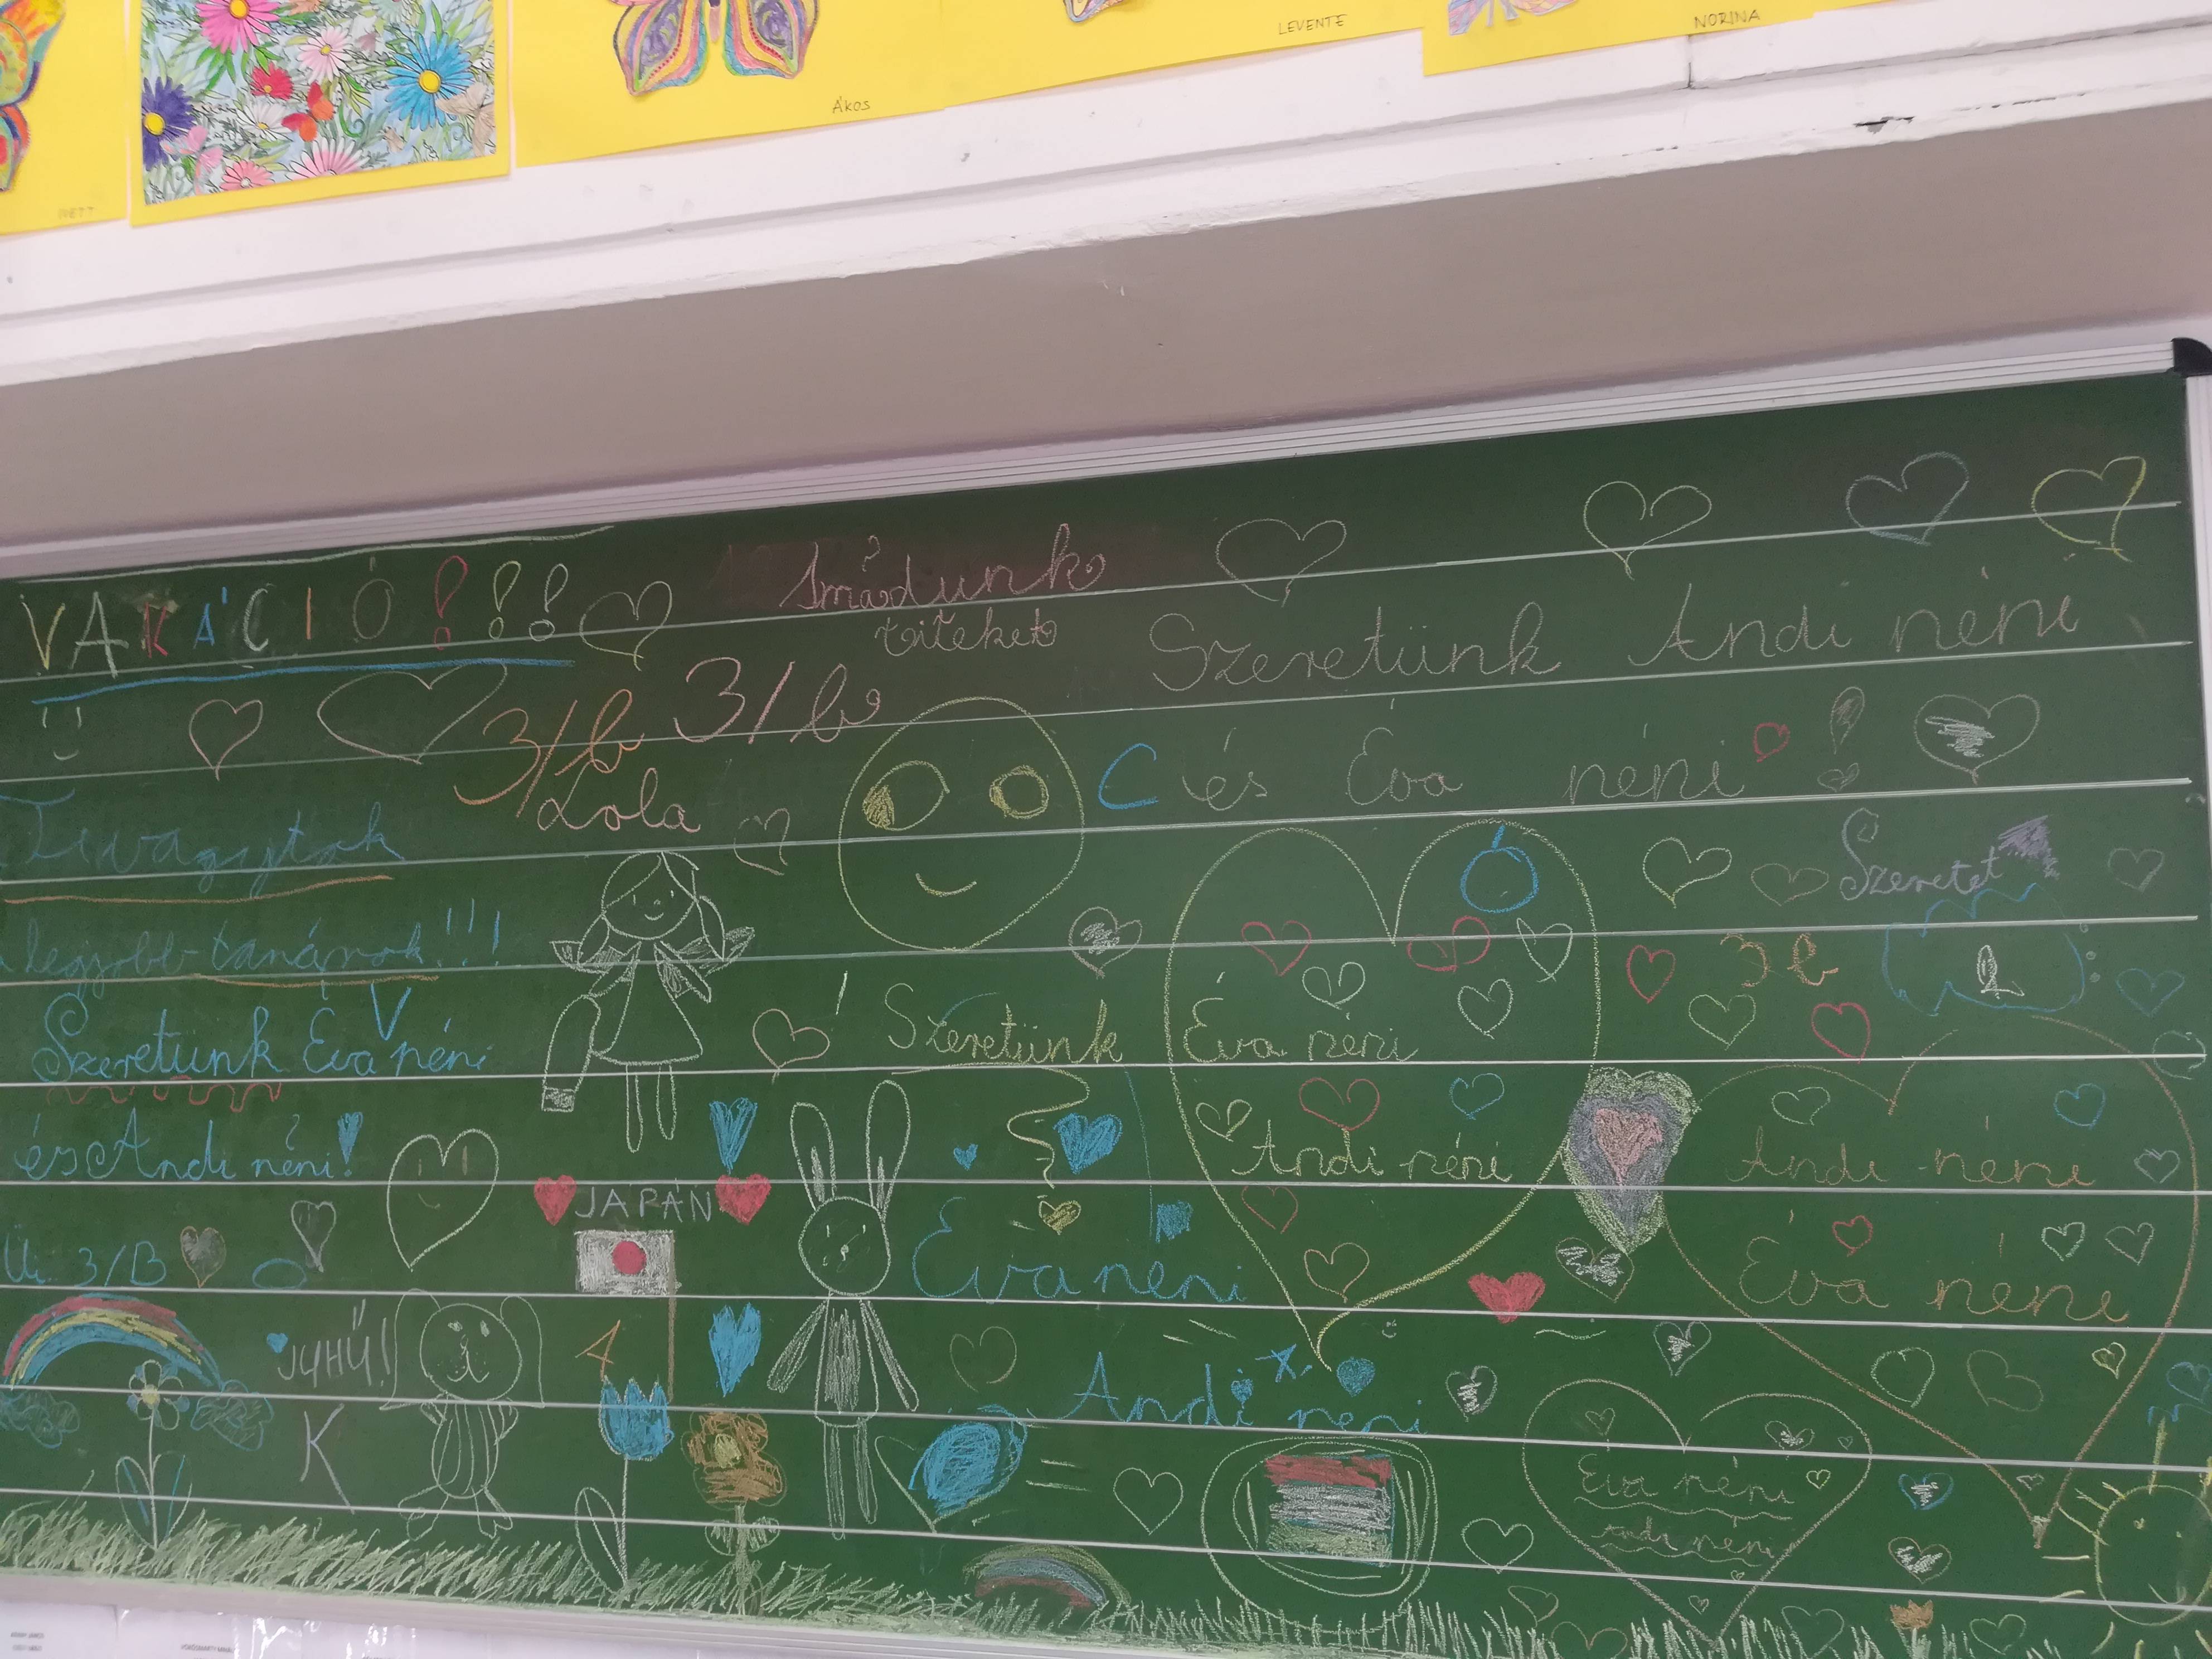 IVETT
ÁKOS
LEVENTE
NORINA
VAKÁCIÓ!!!
Imádunk
titeket
Szeretünk Andi néni
3/b 3/b
Lola
és Éva néni!
Ti vagytok
Szeretet
legjobb tanárok!!!
3b
Szeretünk Éva néni
Szeretünk Éva néni
és Andi néni!
Andi néni
Andi néni
JAPÁN
Ui. 3/B
Éva néni
Éva néni
JUHÚ!
4
Andi néni
K
Éva néni
Andi néni